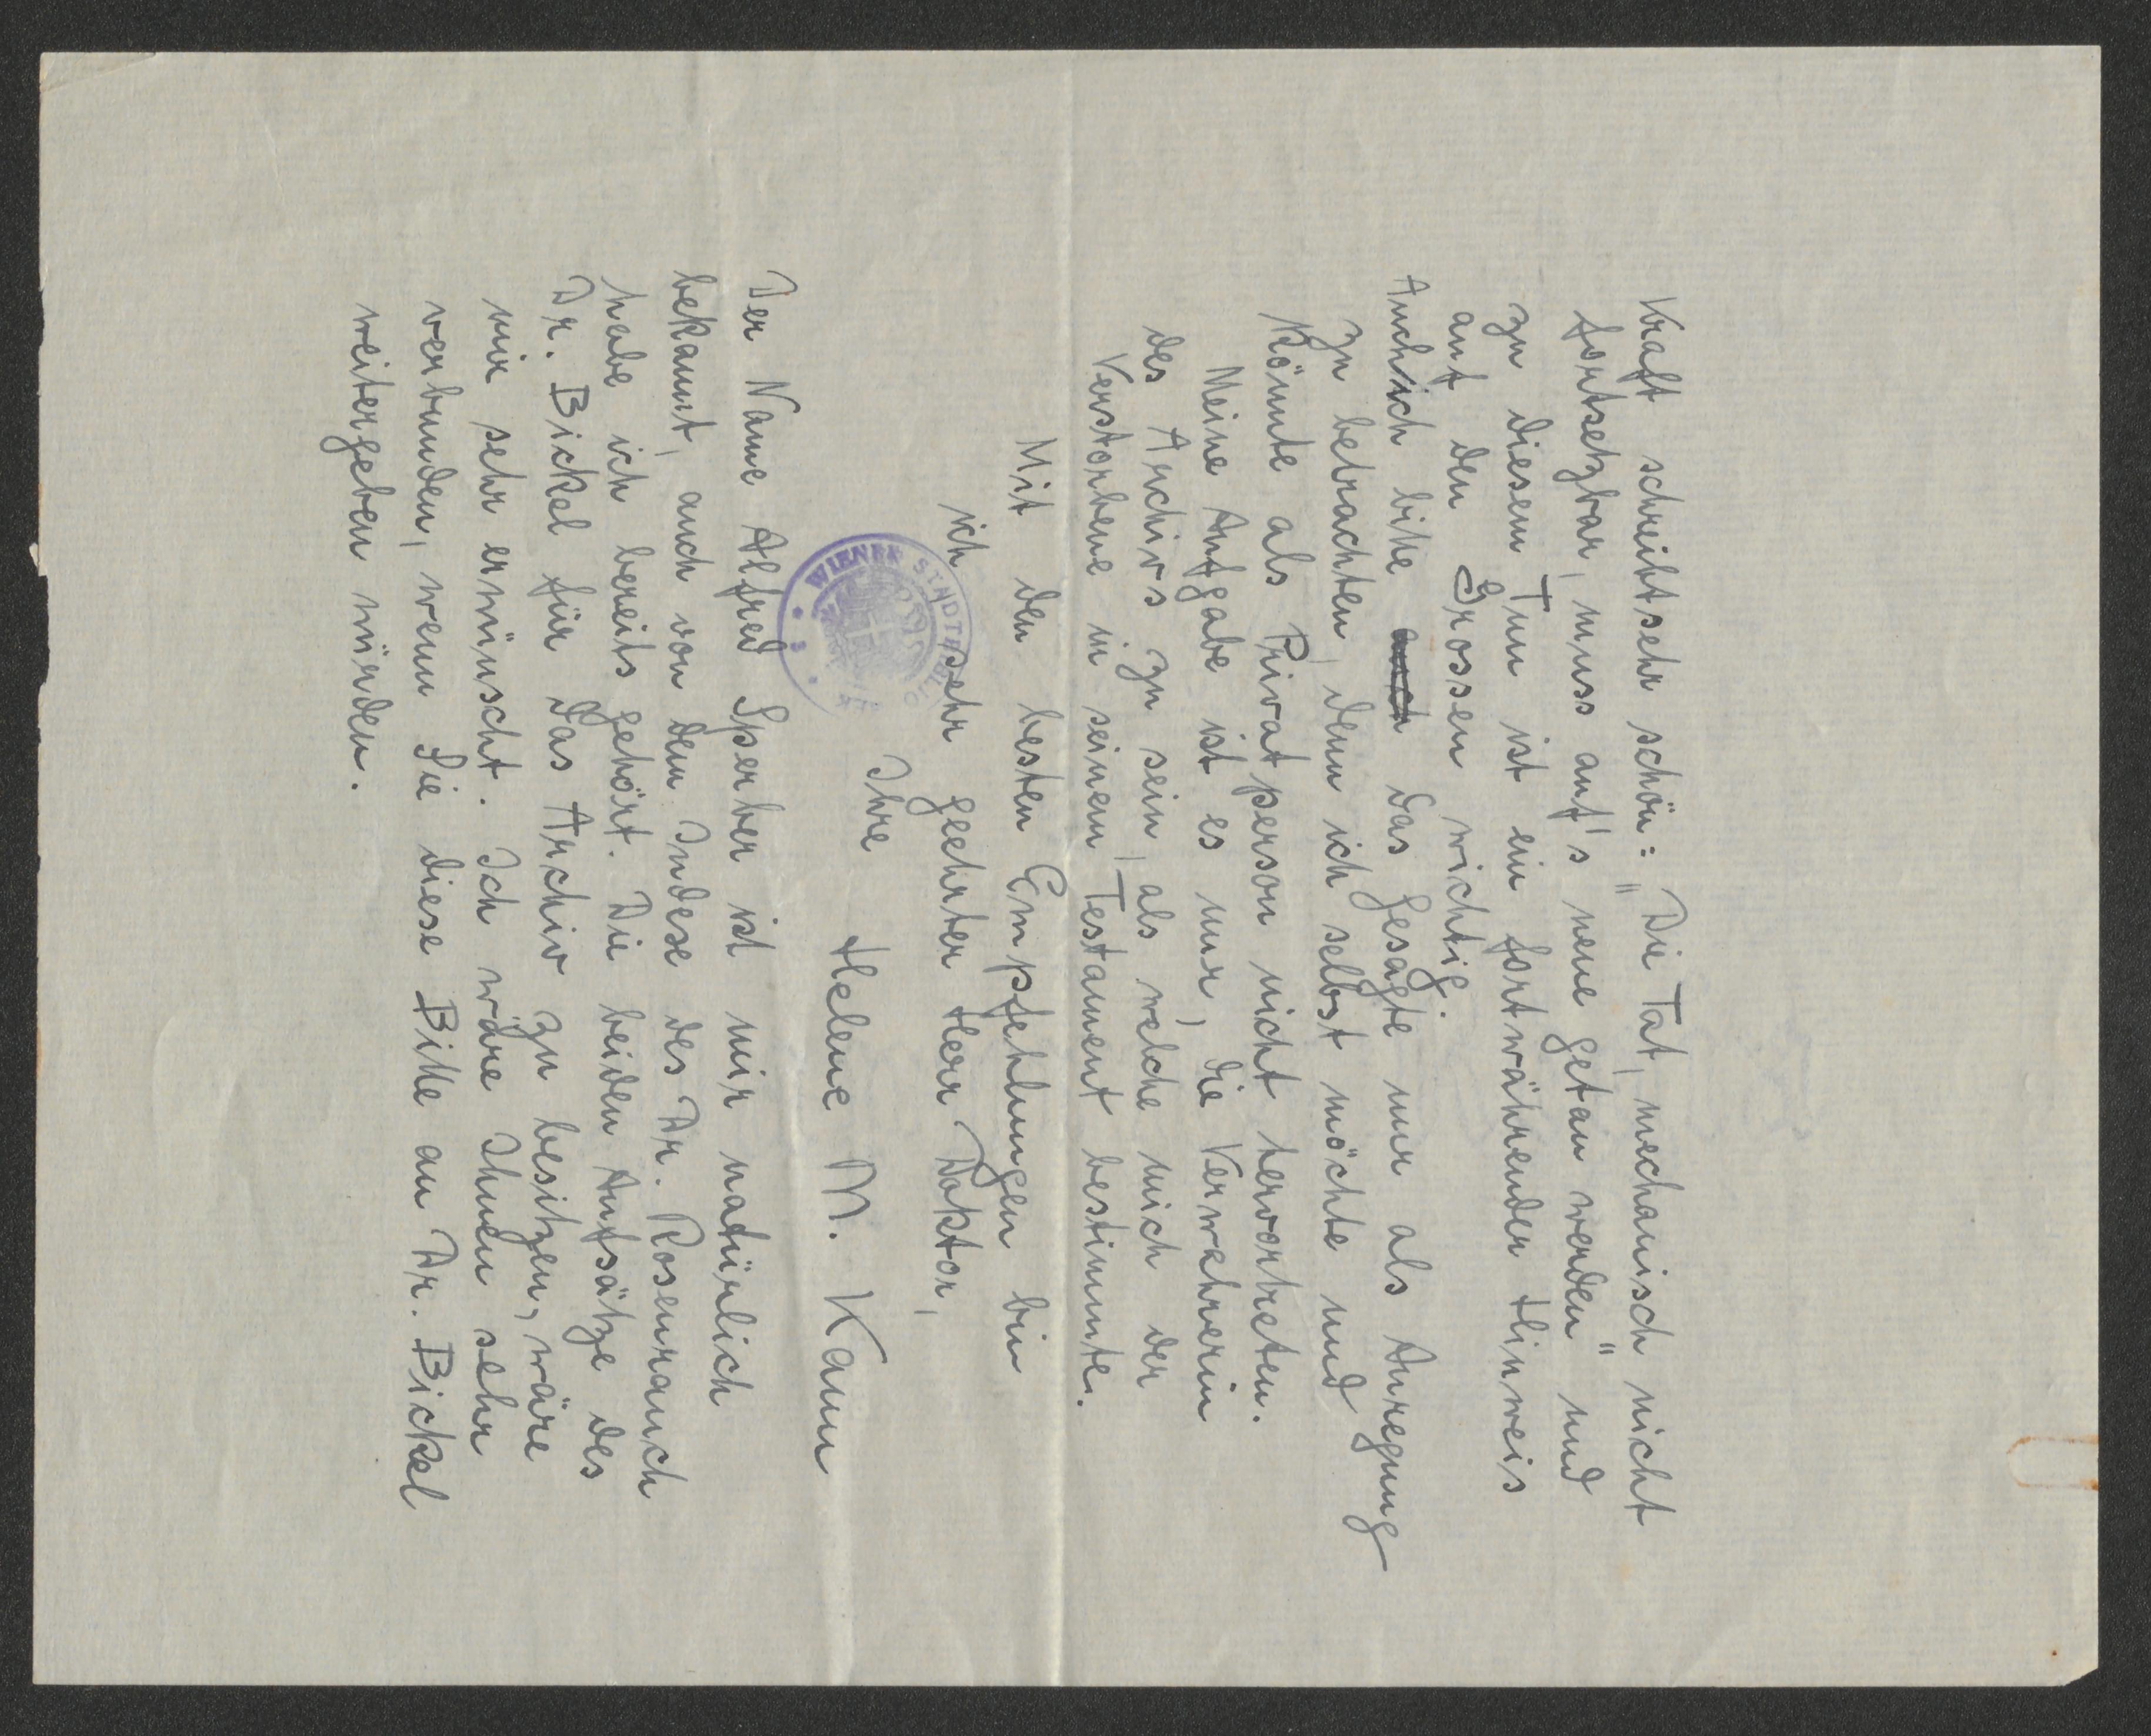 Kraft schreibt sehr schön: „Die Tat, mechanisch nicht
fortsetzbar, muss auf's neue getan werden" und
zu diesem Tun ist ein fortwährender Hinweis
auf den Grossen wichtig.
Auch ich bitte auch das Gesagte nur als Anregung
zu betrachten, denn ich selbst möchte und
könnte als Privatperson nicht hervortreten.
Meine Aufgabe ist es nur, die Verwahrerin
des Archivs zu sein, als welche mich der
Verstorbene in seinem Testament bestimmte.
Mit den besten Empfehlungen bin
ich sehr geehrter Herr Doktor,
Ihre
Helene M. Kann
WIENER STADTBIBLIOTHEK
Der Name Alfred Sperber ist mir natürlich
bekannt, auch von dem Indexe des Dr. Rosenrauch
habe ich bereits gehört. Die beiden Aufsätze des
Dr. Bickel für das Archiv zu besitzen, wäre
mir sehr erwünscht. Ich wäre Ihnen sehr
verbunden, wenn Sie diese Bitte an Dr. Bickel
weitergeben würden.